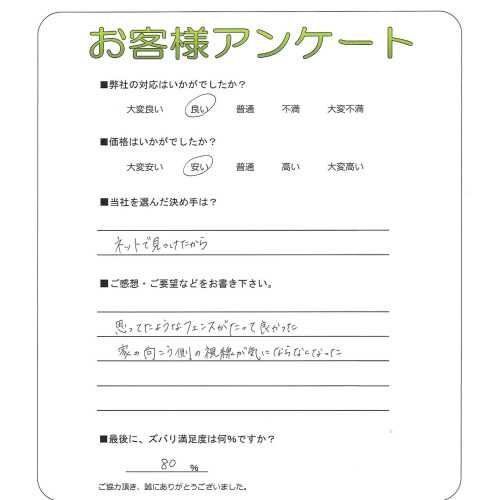 お客様アンケート
■弊社の対応はいかがでしたか？
大変良い 良い 普通 不満 大変不満
■価格はいかがでしたか？
大変安い 安い 普通 高い 大変高い
■当社を選んだ決め手は？
ネットで見つけたから
■ご感想・ご要望などをお書き下さい。
思ってたようなフェンスがたって良かった
家の向こう側の視線が気にならなくなった
■最後に、ズバリ満足度は何％ですか？
80 %
ご協力頂き、誠にありがとうございました。